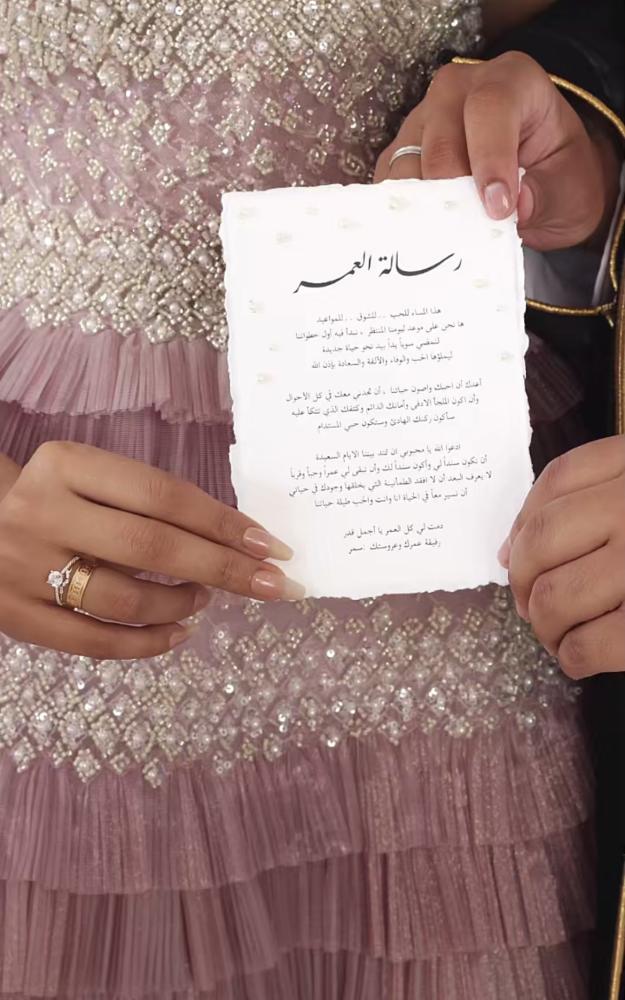 رسالة العمر
هذا المساء للحب ... للشوق ... للمواعيد
ها نحن على موعد ليومنا المنتظر ، نبدأ فيه أول خطواتنا
لنمضي سوياً يداً بيد نحو حياة جديدة
ليملؤها الحب والوفاء والألفة والسعادة بإذن الله
أعدك أن احبك واصون حياتنا ، أن تجدني معك في كل الأحوال
وأن اكون الملجأ الادفى وأمانك الدائم وكتفك الذي تتكأ عليه
سأكون ركنك الهادئ وستكون حبي المستدام
ادعوا الله يا محبوبي ان تمتد بيننا الايام السعيدة
أن تكون سنداً لي وأكون سنداً لك وأن تبقى لي عمراً وحباً وقرباً
لا يعرف البعد أن لا افقد الطمأنينة التي يخلقها وجودك في حياتي
أن نسير معاً في الحياة انا وانت والحب طيلة حياتنا
دمت لي كل العمر يا أجمل قدر
رفيقة عمرك وعروستك :سمر